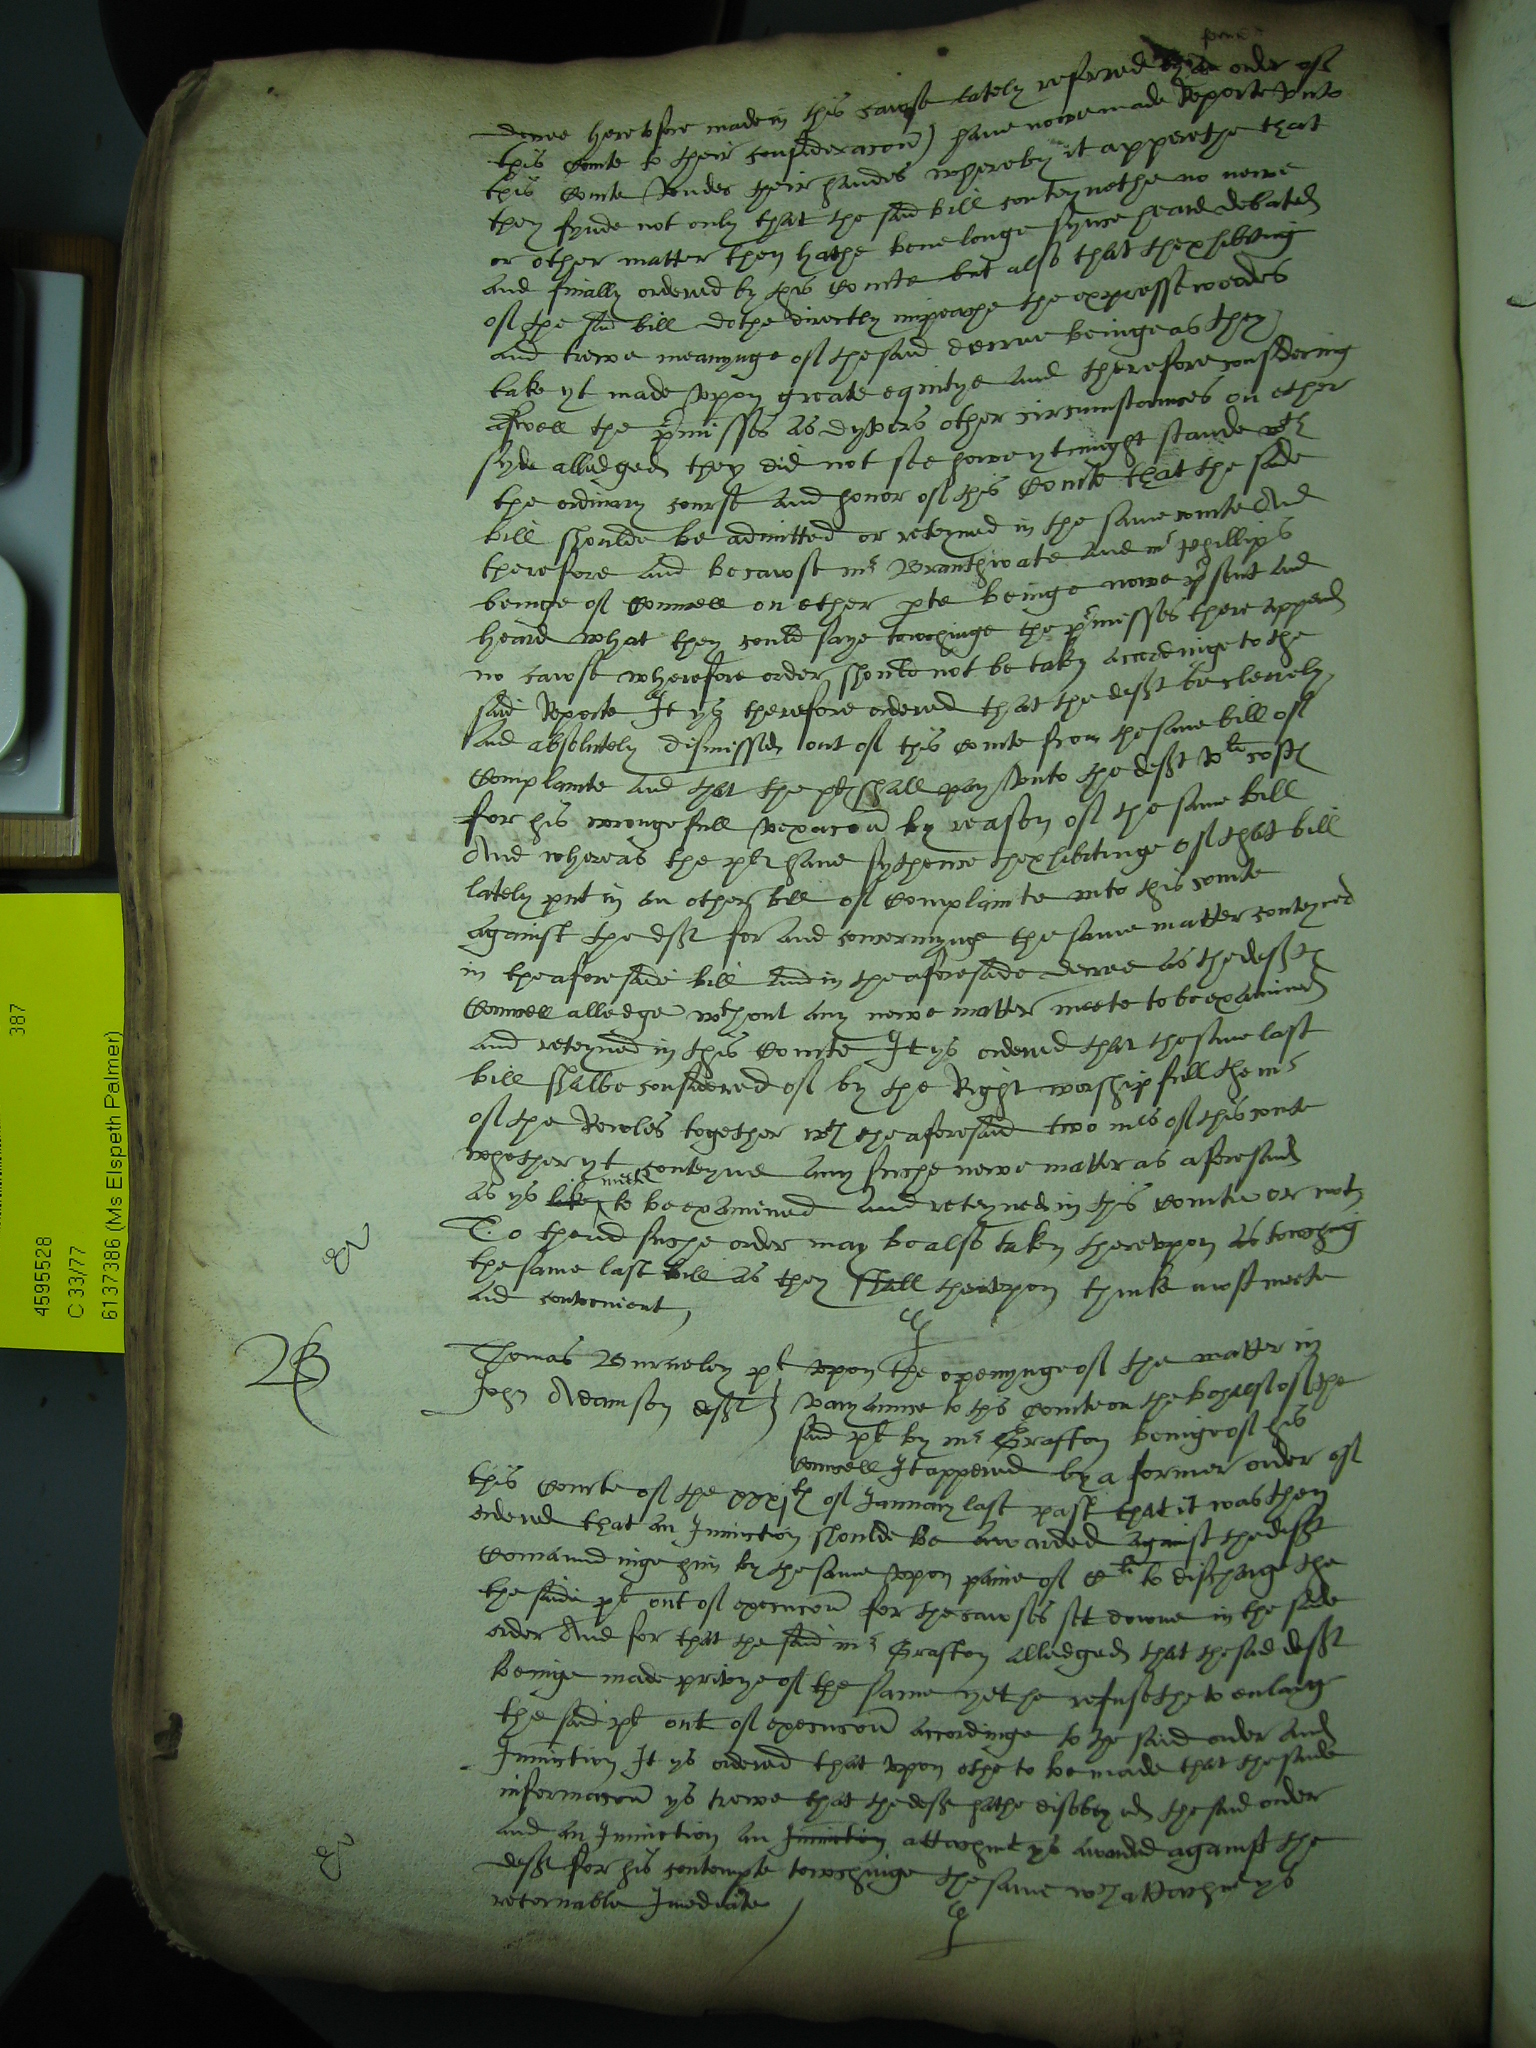 decree heretofore made in this cawse lately referred by order of
this Courte to their consideracon) have nowe made Reporte unto
this Courte Under their handes whereby it apperethe that
they fynde not only that the said bill conteynethe no newe
or other matter then hathe bene longe synce heard debated
and finally ordered by this Courte but also that thexhibiting
of the said bill dothe directly impeache the expresse wordes
and trewe meanynge of the said decree beinge as they
take yt made upon greate equitye and therefore considering
aswell the p'misses as dyvers other circumstances on ether
syde alledged they did not see howe yt might stande wth
the ordinary course and honor of this Courte that the saide
bill shoulde be admitted or reteyned in the same courte And
therefore and becawse mr Branthwate and mr Phillips
beinge of Councell on ether p'te beinge nowe p'sent and
heard what they could saye towchinge the p'misses there appered
no cawse wherefore order shoulde not be taken accordinge to the
said Reporte It ys therefore ordered that the deft be clerely
and absolutely dismissed out of this Courte from the same bill of
Complainte and that the plt shall pay unto the deft vli costs
for his wrongefull vexacon by reason of the same bill
And whereas the plt have sythence thexhibitinge of that bill
lately put in an other bill of Complainte into this courte
against the deft for and concerninge the same matter conteyned
in the aforesaide bill and in the aforesaide decree as the deftes
Councell alledge wthout any newe matter meete to be examined
and reteyned in this Courte It ys ordered that the same last
bill shalbe considered of by the Right worshipfull the mr
of the Rowles together wth the aforesaid two mrs of this courte
whether yt conteyne any suche newe matter as aforesaid
as ys like meete to be examined and reteyned in this Courte or not
To thend suche order may be also taken thereupon as towching
the same last bill as they shall thereupon thinke most meete
and convenient
Thomas Burneley plt
John Adamson deft
upon the openynge of the matter in
varyaunce to this Courte on the behalf of the
said plt by mr Grafton beinge of his
Councell It appered by a former order of
this Courte of the xxxjth of January last past that it was then
ordered that an Iniunction shoulde be awarded against the deft
Comaundinge him by the same upon paine of Cli to discharge the
the saide plt out of execucon for the cawses set downe in the saide
order And for that the said mr Grafton alledged that the said deft
beinge made privye of the same yet he refusethe to enlarge
the said plt out of execucon accordinge to the said order and
Iniunction It ys ordered that upon othe to be made that the saide
informacon ys trewe that the deft hathe disobeyed the said order
and an Iniunction an Iniunction attachmt ys awarded against the
deft for his contempte towchinge the same wch attachmt ys
retornable Imediate
4595528
C 33/77
6137386 (Ms Elspeth Palmer)
387